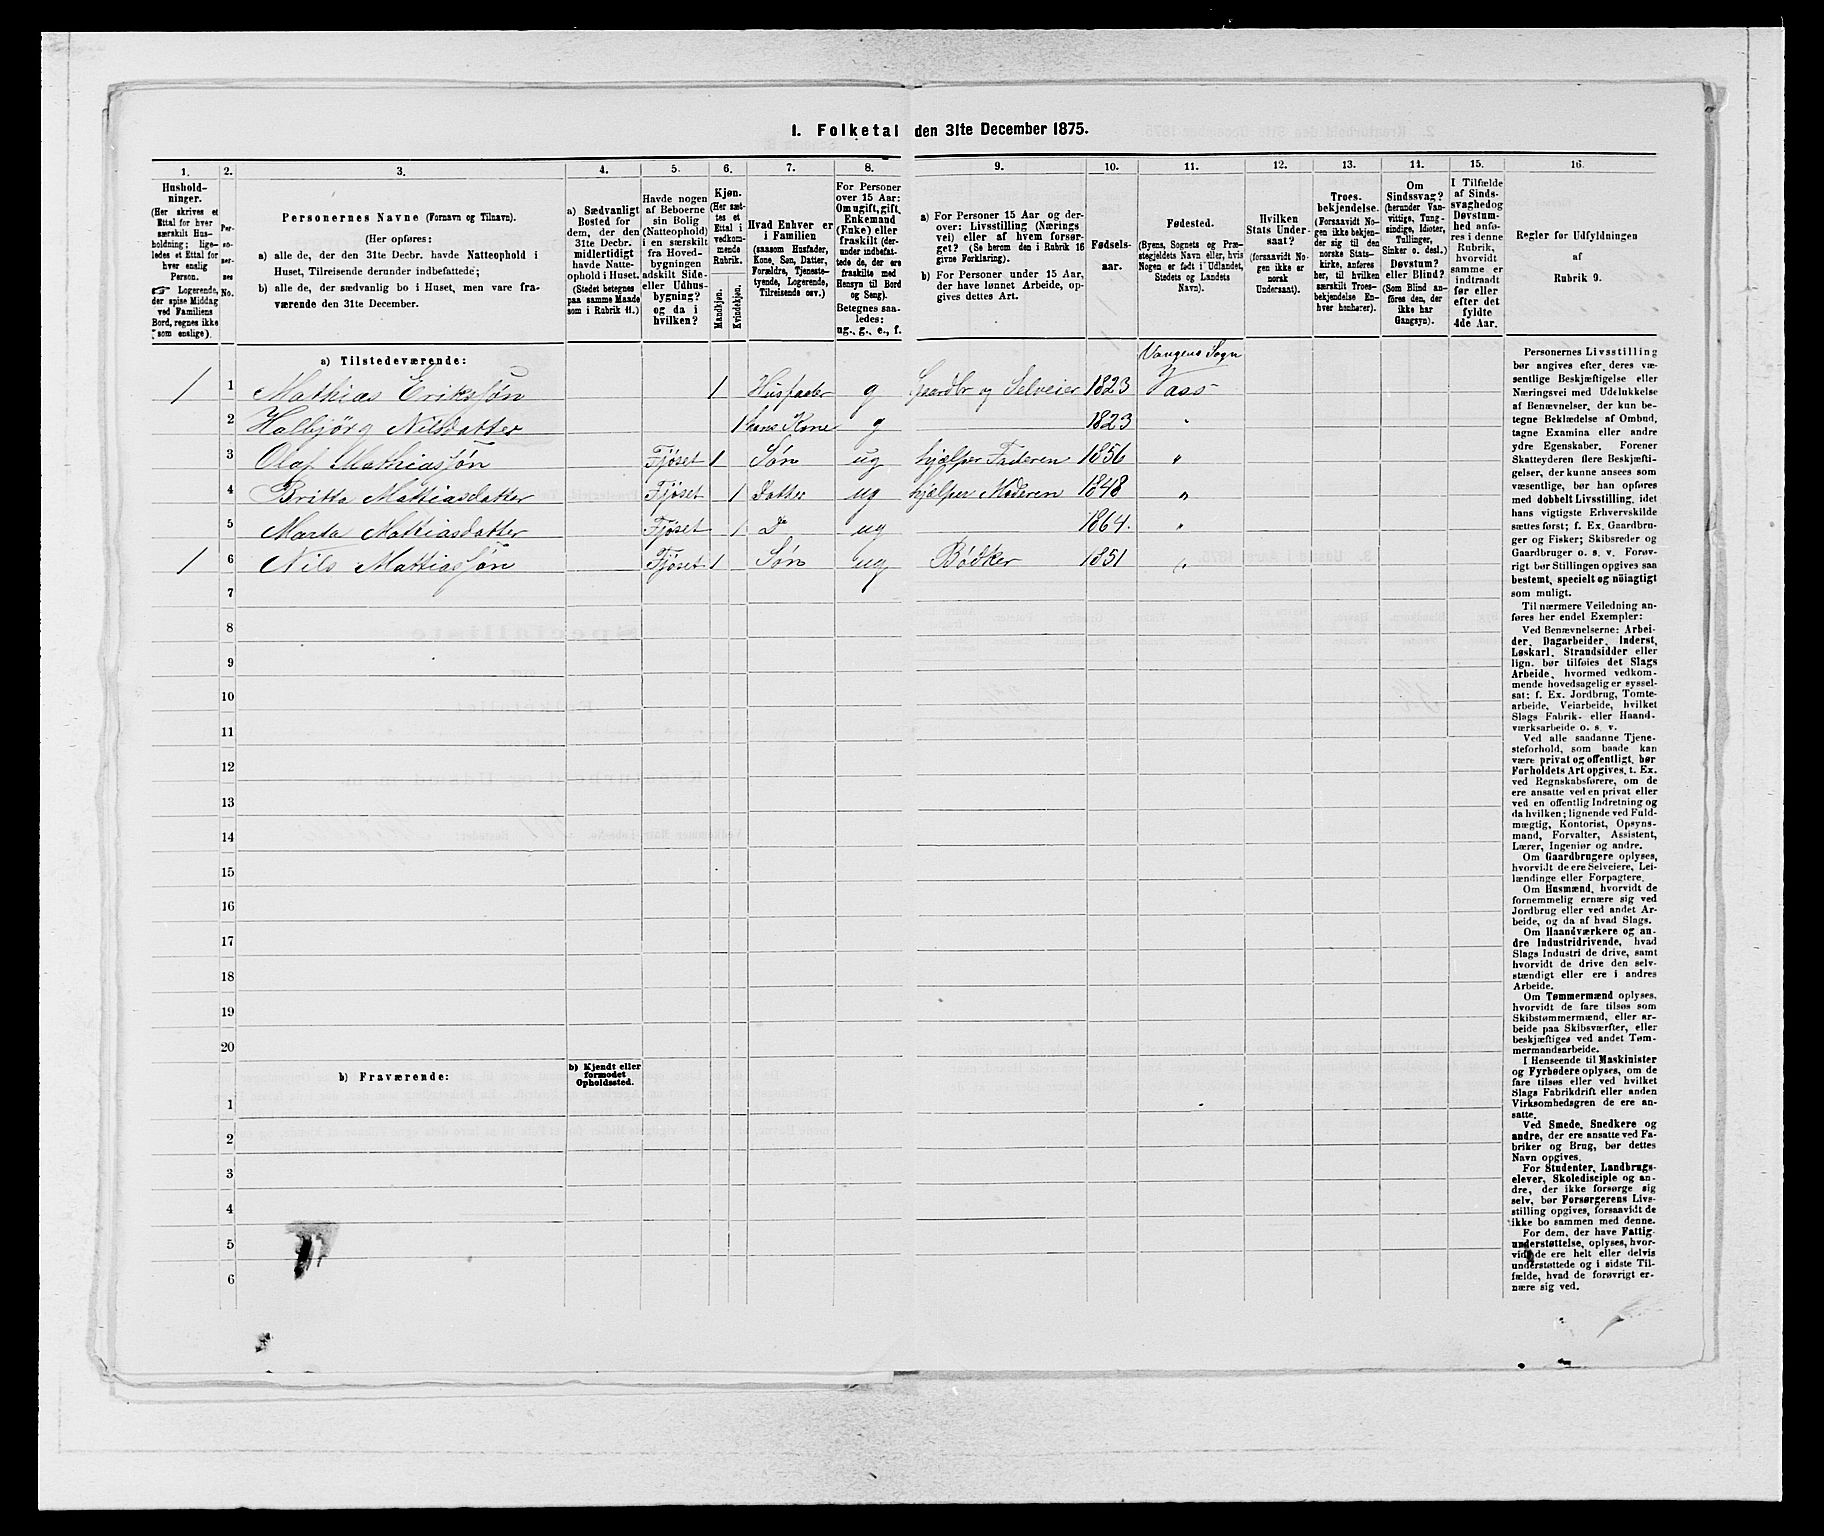 1. Folketal den 31te December 1875.
1.
2.
3.
4.
5.
6.
7.
8.
9.
10.
11.
12.
13.
14.
15.
16.
Husholdninger.
(Her skrives et
Ettal for hver
særskilt Husholdning; ligeledes et Ettal for
hver enslig
Person.
☞ Logerende,
der spise Middag
ved Familiens
Bord, regnes ikke
som enslige).
Personernes No.
Personernes Navne (Fornavn og Tilnavn).
(Her opføres:
a) alle de, der den 31te Decbr. havde Natteophold i
Huset, Tilreisende derunder indbefattede;
b) alle de, der sædvanlig bo i Huset, men vare fraværende den 31te December.
a) Sædvanligt
Bosted for
dem, der den
31te Decbr.
midlertidigt
havde Natteophold i Huset.
(Stedet betegnes
paa samme Maade
som i Rubrik 11.)
Havde nogen
af Beboerne
sin Bolig
(Natteophold)
i en særskilt
fra Hovedbygningen
adskilt Side- eller Udhusbygning?
og da i
hvilken?
Kjøn.
(Her sættes et
Ettal i
vedkommende
Rubrik.
Mandkjøn.
Kvindekjøn.
Hvad Enhver er
i Familien
(saasom Husfader,
Kone, Søn, Datter,
Forældre, Tjenestetyende, Logerende,
Tilreisende osv.)
For Personer
over 15 Aar:
Om ugift, gift,
Enkemand
(Enke) eller
fraskilt (derunder indbefattede de, der ere
fraskilte med
Hensyn til Bord
og Seng).
Betegnes saaledes:
ug., g., e., f.
a) For Personer 15 Aar og derover: Livsstilling (Næringsvei) eller af hvem forsørget? (Se herom den i Rubrik 16
givne Forklaring).
b) For Personer under 15 Aar,
der have lønnet Arbeide, opgives dettes Art.
Fødselsaar.
Fødested.
(Byens, Sognets og Præstegjeldets Navn eller, hvis
Nogen er født i Udlandet,
Stedets og Landets
Navn).
Hvilken
Stats Undersaat?
(forsaavidt Nogen ikke er
norsk
Undersaat).
Troesbekjendelse.
(Forsaavidt Nogen ikke bekjender sig til den
norske Statskirke, anføres
her, til hvilken
særskilt Troesbekjendelse Enhver henhører).
Om
Sindssvag?
(herunder Vanvittige, Tungsindige, Idioter,
Tullinger,
Sinker o. desl.)
Døvstum?
eller Blind?
(Som Blind anføres den, der
ikke har
Gangsyn).
I Tilfælde
af Sindssvaghed og
Døvstumhed anføres i denne
Rubrik,
hvorvidt
samme er
indtraadt
før eller
efter det
fyldte
4de Aar.
Regler for Udfyldningen
af
Rubrik 9.
a) Tilstedeværende:
Vangens Sogn
1 1 Mathias Eriksson 1 Husfader g Gaardbr og Selveier 1823 Vass
2 Halbjörg Nilsdatter 1 hans Kone g 1823 "
3 Olaf Mathiassön Fjöset 1 Sön ug hjælper Faderen 1856 "
4 Britta Mattiasdatter Fjöset 1 Datter ug hjælper Moderen 1848 "
5 Marta Mattiasdatter Fjöset 1 Do ug 1864. "
1 6 Nils Mattiassön Fjöset 1 Sön ug Bödker 1851 "
7
8
9
10
11
12
13
14
15
16
17
18
19
20
b) Fraværende:
b) Kjendt eller
formodet
Opholdssted.
1
2
3
4
5
6
Personernes Livsstilling
bør angives efter deres væsentlige Beskjæftigelse eller
Næringsvei med Udelukkelse
af Benævnelser, der kun betegne Beklædelse af Ombud,
tagne Examina eller andre
ydre Egenskaber. Forener
Skatteyderen flere Beskjæftigelser, der kunne ansees som
væsentlige, bør han opføres
med dobbelt Livsstilling, idet
hans vigtigste Erhvervskilde
sættes først; f. Ex. Gaardbruger og Fisker; Skibsreder og
Gaardbruger o. s. v. Forøvrigt bør Stillingen opgives saa
bestemt, specielt og nöiagtigt
som muligt.
Til nærmere Veiledning anføres her endel Exempler:
Ved Benævnelserne: Arbeider, Dagarbeider, Inderst,
Løskarl, Strandsidder eller
lign. bør tilføies det Slags
Arbeide, hvormed vedkommende hovedsagelig er sysselsat; f. Ex. Jordbrug, Tomtearbeide, Veiarbeide, hvilket
Slags Fabrik- eller Haandværksarbeide o. s. v.
Ved alle saadanne Tjenesteforhold, som baade kan
være privat og offentligt, bør
Forholdets Art opgives, t. Ex.
ved Regnskabsførere, om de
ere ansatte ved en privat eller
ved en offentlig Indretning og
da hvilken; lignende ved Fuldmægtig, Kontorist, Opsynsmand, Forvalter, Assistent,
Lærer, Ingeniør og andre.
Om Gaardbrugere oplyses,
hvorvidt de ere Selveiere, Leilændinge eller Forpagtere.
Om Husmænd, hvorvidt de
fornemmelig ernære sig ved
Jordbrug eller ved andet Arbeide, og da af hvad Slags.
Om Haandværkere og andre Industridrivende, hvad
Slags Industri de drive, samt
hvorvidt de drive den selvstændigt eller ere i andres
Arbeide.
Om Tømmermænd oplyses,
hvorvidt de fare tilsøs som
Skibstømmermænd, eller arbeide paa Skibsværfter, eller
beskjæftiges ved andet Tømmermandsarbeide.
I Henseende til Maskinister
og Fyrbødere oplyses, om de
fare tilsøs eller ved hvilket
Slags Fabrikdrift eller anden
Virksomhedsgren de ere ansatte.
Ved Smede, Snedkere og
andre, der ere ansatte ved Fabriker og Brug, bør dettes
Navn opgives.
For Studenter, Landbrugselever, Skoledisciple og andre, der ikke forsørge sig
selv, bør Forsørgerens Livsstilling opgives, forsaavidt de
ikke bo sammen med denne.
For dem, der have Fattigunderstøttelse, oplyses, hvorvidt de ere helt eller delvis
understøttede og i sidste Tilfælde, hvad de forøvrigt ernære sig ved.